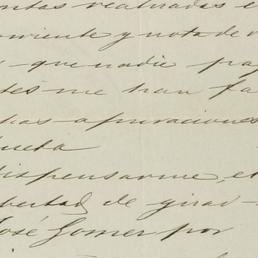 ntas realizadas e
orriente y nota de v
que nadie pag
tes me han fa
has apuraciones
ueta
dispensarme, et
libertad de girar
José Gomez por